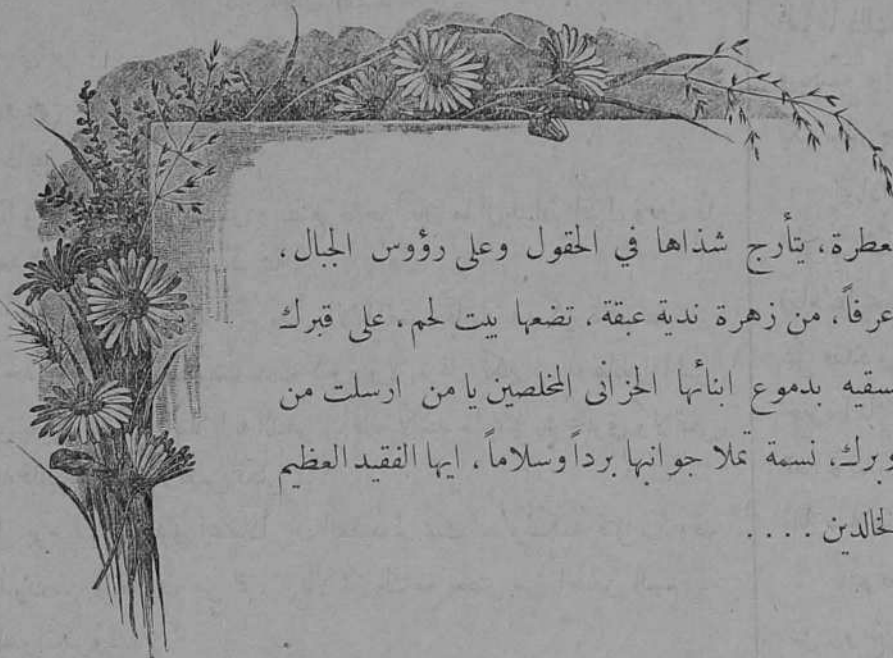 عطرة، يتأرج شذاها في الحقول وعلى رؤوس الجبال،
عرفاً، من زهرة ندية عبقة، تضعها بيت لحم، على قبرك
سقيه بدموع ابنائها الحزانى المخلصين يا من ارسلت من
وبرك، نسمة تملا جوانبها برداً وسلاماً، ايها الفقيد العظيم
لخالدين ....